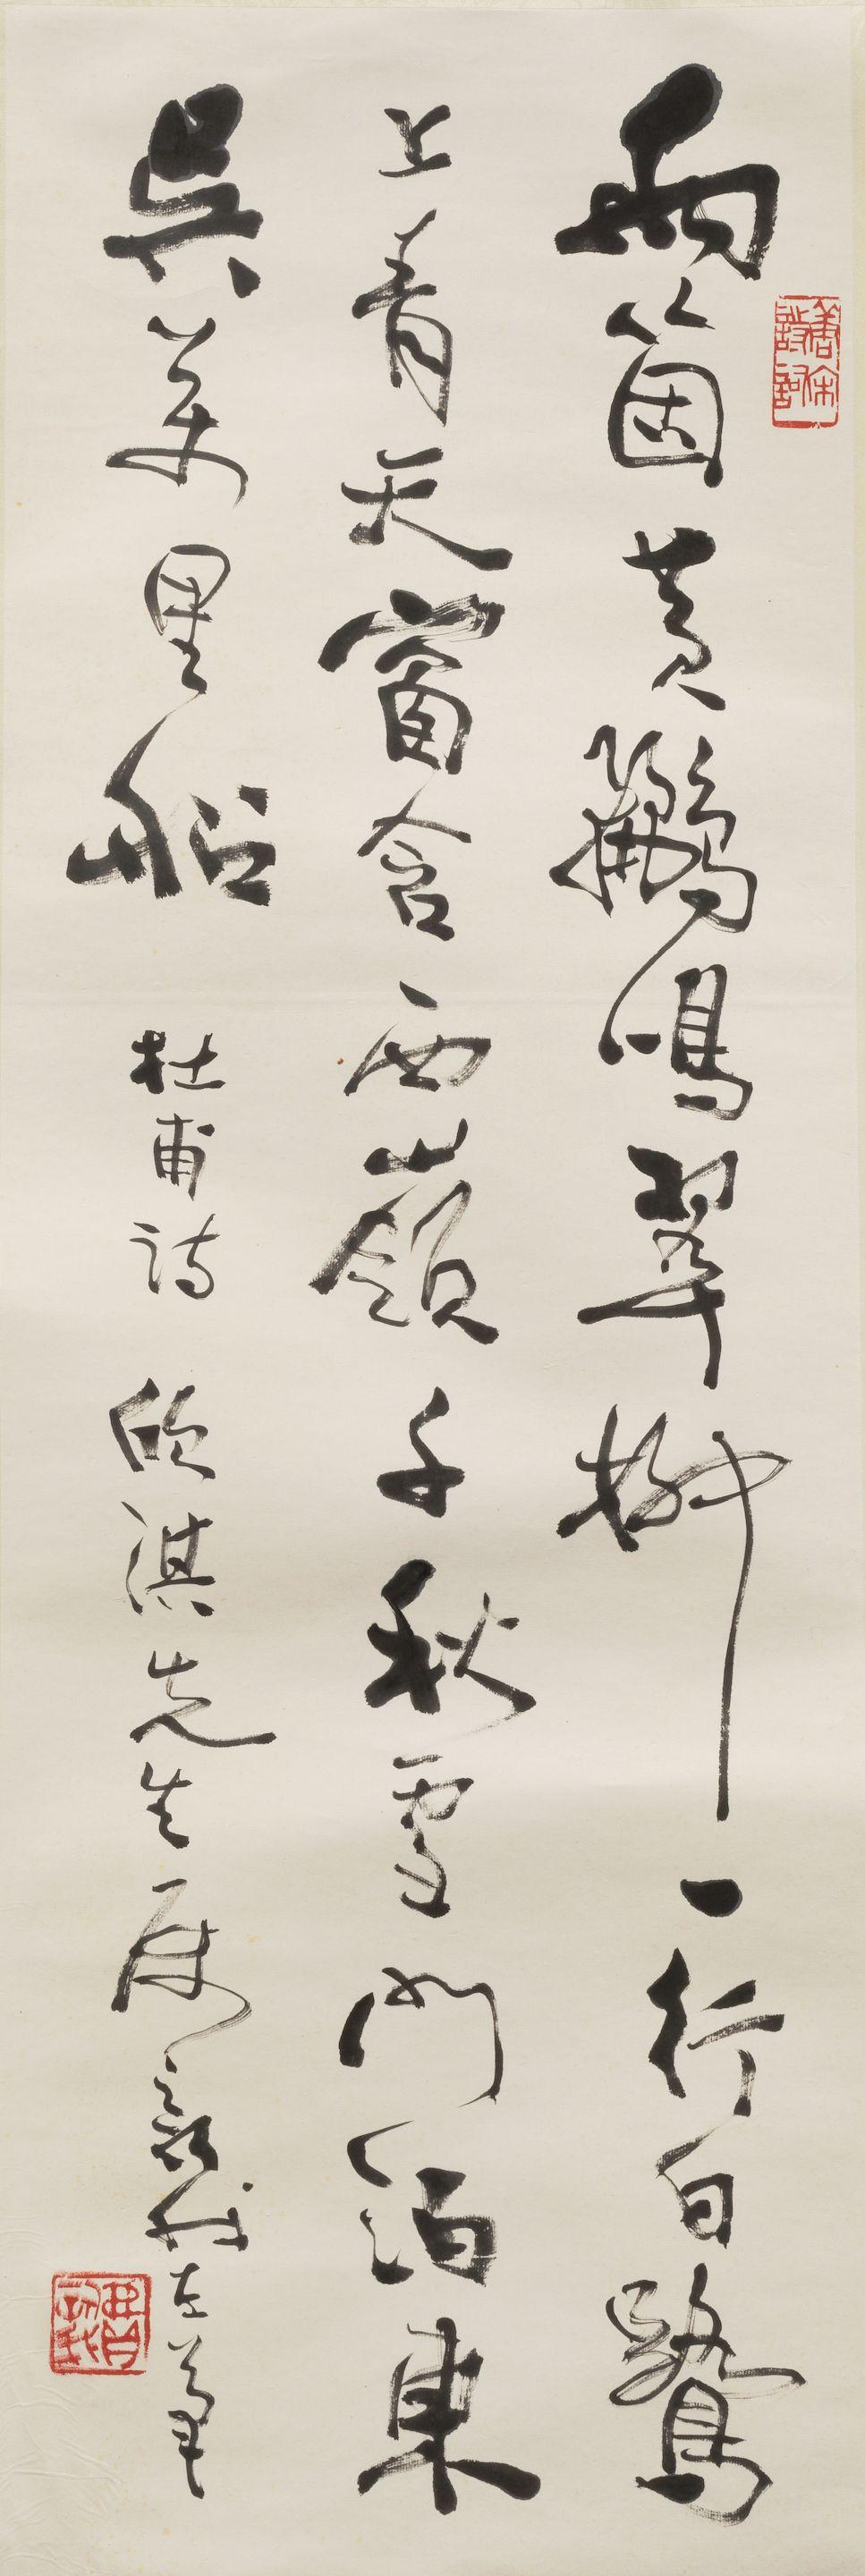 唐宋詩詞
兩箇黃鸝鳴翠柳一行白鷺
上青天窗含西嶺千秋雪門泊東
吳萬里船 杜甫詩 欣淇先生屬